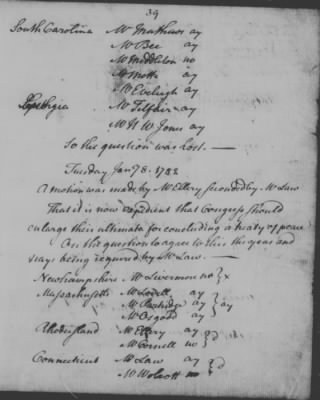 39
South Carolina Mr Mathews ay
Mr Bee ay
Mr Middleton no
Mr Motte ay
Mr Eveleigh ay
Georgia Mr Telfair ay
Mr N W Jones ay
So the question was lost.—
Tuesday Jany 8. 1782
A motion was made by Mr Ellery seconded by Mr Law
That it is now expedient that Congress should
enlarge their ultimata for concluding a treaty of peace
On the question to agree to this the yeas and
nays being required by Mr Law—
Newhampshire Mr Livermore no } x
Massachusetts Mr Lovell ay
Mr Partridge ay } ay
Mr Osgood ay
Rhodeisland Mr Ellery ay } d
Mr Cornell no
Connecticut Mr Law ay } d
Mr Wolcott no